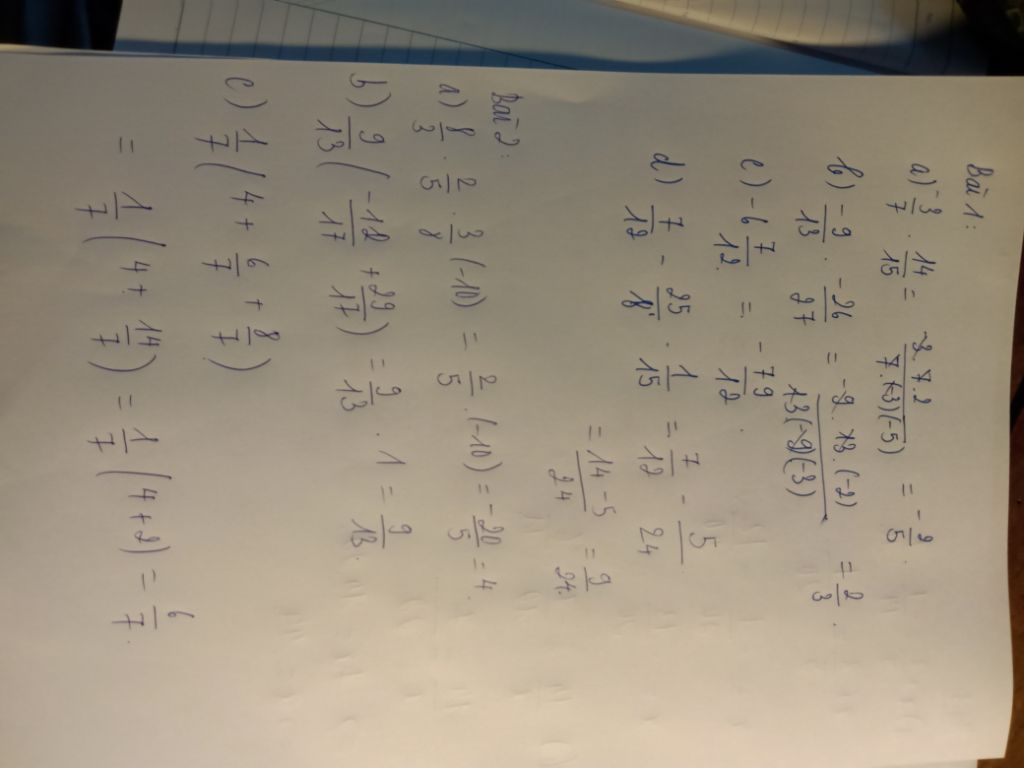 Bài 1:
a) -3/7 . 14/15 = -3.7.2/7.(-3)(-5) = -2/5
b) -9/13 . -26/27 = -9.13.(-2)/13(-9)(-3) = 2/3.
c) -6 7/12 = -79/12.
d) 7/12 - 25/18 . 1/15 = 7/12 - 5/24
= 14-5/24 = 9/24.
Bài 2:
a) 8/3 . 2/5 . 3/8 (-10) = 2/5 . (-10) = -20/5 = 4.
b) 9/13 ( -12/17 + 29/17 ) = 9/13 . 1 = 9/13.
c) 1/7 ( 4 + 6/7 + 8/7 )
= 1/7 ( 4 + 14/7 ) = 1/7 ( 4 + 2 ) = 6/7.